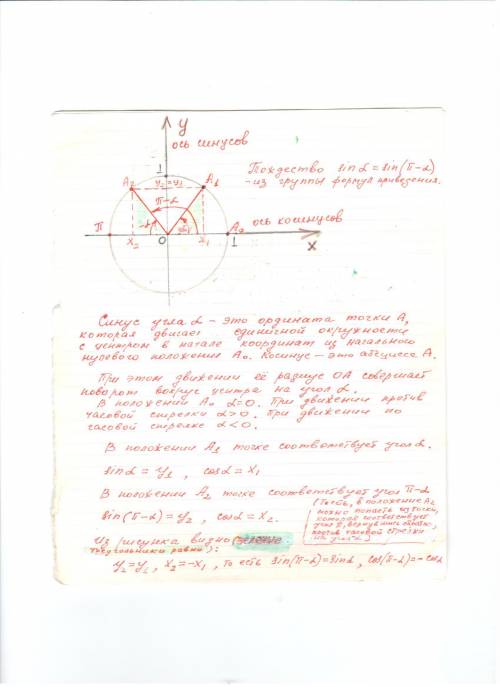 y
ось синусов
1
A₂ y₂=y₁ A₁
π-α
Тождество sinα = sin(π-α)
-из группы формул приведения.
π -α α A₀ ось косинусов
x₂ O x₁ 1 x
Синус угла α - это ордината точки A,
которая двигает единичной окружности
с центром в начале координат из начального
нулевого положения A₀. Косинус - это абсцисса A.
При этом движении её радиус OA совершает
поворот вокруг центра на угол α.
В положении A₀ α=0. При движении против
часовой стрелки α>0. При движении по
часовой стрелке α<0.
В положении A₁ точке соответствует угол α.
sinα = y₁ , cosα = x₁
В положении A₂ точке соответствует угол π-α
sin(π-α) = y₂ , cosα = x₂.
(То есть, в положение A₂
можно попасть из точки,
которая соответствует
углу π, вернувшись обратно,
против часовой стрелки
на угол α)
Из рисунка видно (зеленые
треугольники равны):
y₂=y₁, x₂=-x₁, то есть sin(π-α)=sinα, cos(π-α)=-cosα